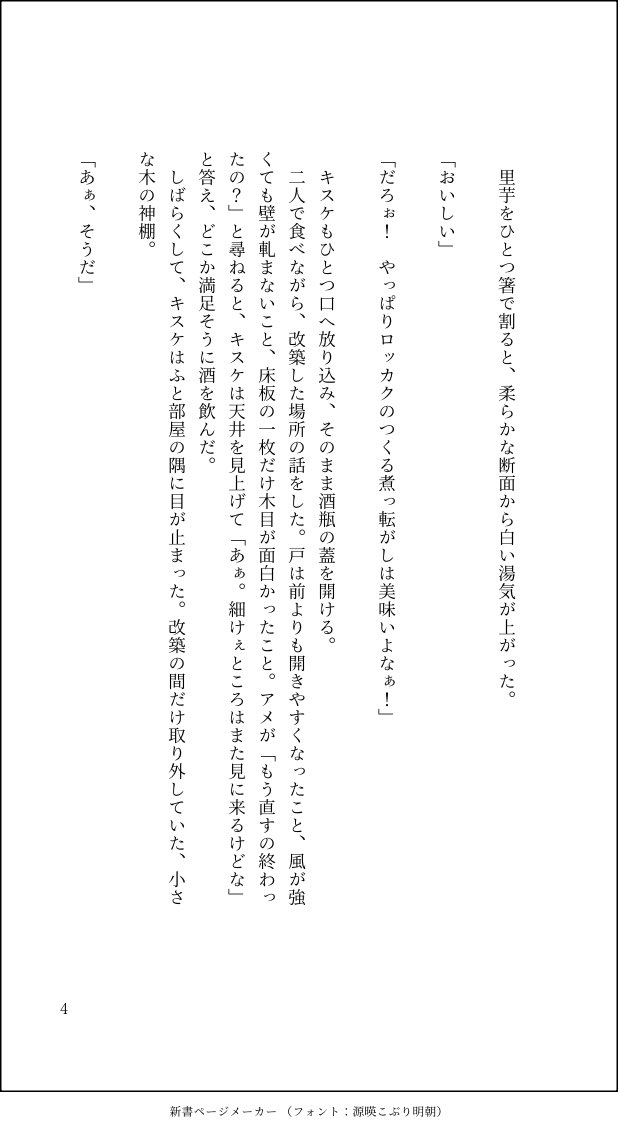 里芋をひとつ箸で割ると、柔らかな断面から白い湯気が上がった。
「おいしい」
「だろぉ！　やっぱりロッカクのつくる煮っ転がしは美味いよなぁ！」
キスケもひとつ口へ放り込み、そのまま酒瓶の蓋を開ける。
二人で食べながら、改築した場所の話をした。戸は前よりも開きやすくなったこと、風が強
くても壁が軋まないこと、床板の一枚だけ木目が面白かったこと。アメが「もう直すの終わっ
たの？」と尋ねると、キスケは天井を見上げて「あぁ。細けぇところはまた見に来るけどな」
と答え、どこか満足そうに酒を飲んだ。
しばらくして、キスケはふと部屋の隅に目が止まった。改築の間だけ取り外していた、小さ
な木の神棚。
「あぁ、そうだ」
4
新書ページメーカー（フォント：源暎こぶり明朝）